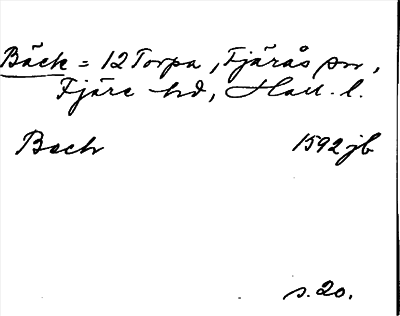 Bäck = 12 Torpa, Fjärås sn,
Fjäre hd, Hall. l.
Bech 1592 jb
s. 20.